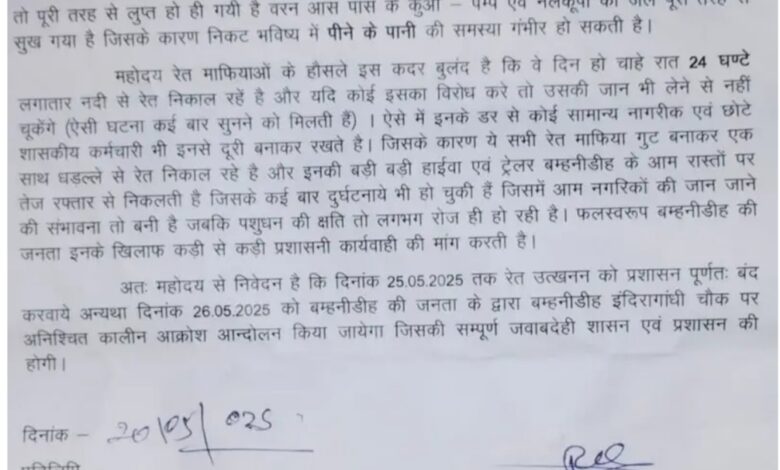 तो पूरी तरह से लुप्त हो ही गयी है वरन आस पास के कुआं – पम्प एवं नलकूपों का जल पूरी तरह से
सुख गया है जिसके कारण निकट भविष्य में पीने के पानी की समस्या गंभीर हो सकती है।
महोदय रेत माफियाओं के हौसले इस कदर बुलंद है कि वे दिन हो चाहे रात 24 घण्टे
लगातार नदी से रेत निकाल रहें है और यदि कोई इसका विरोध करे तो उसकी जान भी लेने से नहीं
चूकेंगे (ऐसी घटना कई बार सुनने को मिलती हैं) । ऐसे में इनके डर से कोई सामान्य नागरीक एवं छोटे
शासकीय कर्मचारी भी इनसे दूरी बनाकर रखते है। जिसके कारण ये सभी रेत माफिया गुट बनाकर एक
साथ धड़ल्ले से रेत निकाल रहे है और इनकी बड़ी बड़ी हाईवा एवं ट्रेलर बम्हनीडीह के आम रास्तों पर
तेज रफ्तार से निकलती है जिसके कई बार दुर्घटनाये भी हो चुकी हैं जिसमें आम नगरिकों की जान जाने
की संभावना तो बनी है जबकि पशुधन की क्षति तो लगभग रोज ही हो रही है। फलस्वरूप बम्हनीडीह की
जनता इनके खिलाफ कड़ी से कड़ी प्रशासनी कार्यवाही की मांग करती है।
अतः महोदय से निवेदन है कि दिनांक 25.05.2025 तक रेत उत्खनन को प्रशासन पूर्णतः बंद
करवाये अन्यथा दिनांक 26.05.2025 को बम्हनीडीह की जनता के द्वारा बम्हनीडीह इंदिरागांधी चौक पर
अनिश्चित कालीन आक्रोश आन्दोलन किया जायेगा जिसकी सम्पूर्ण जवाबदेही शासन एवं प्रशासन की
होगी।
दिनांक – 20/05/025